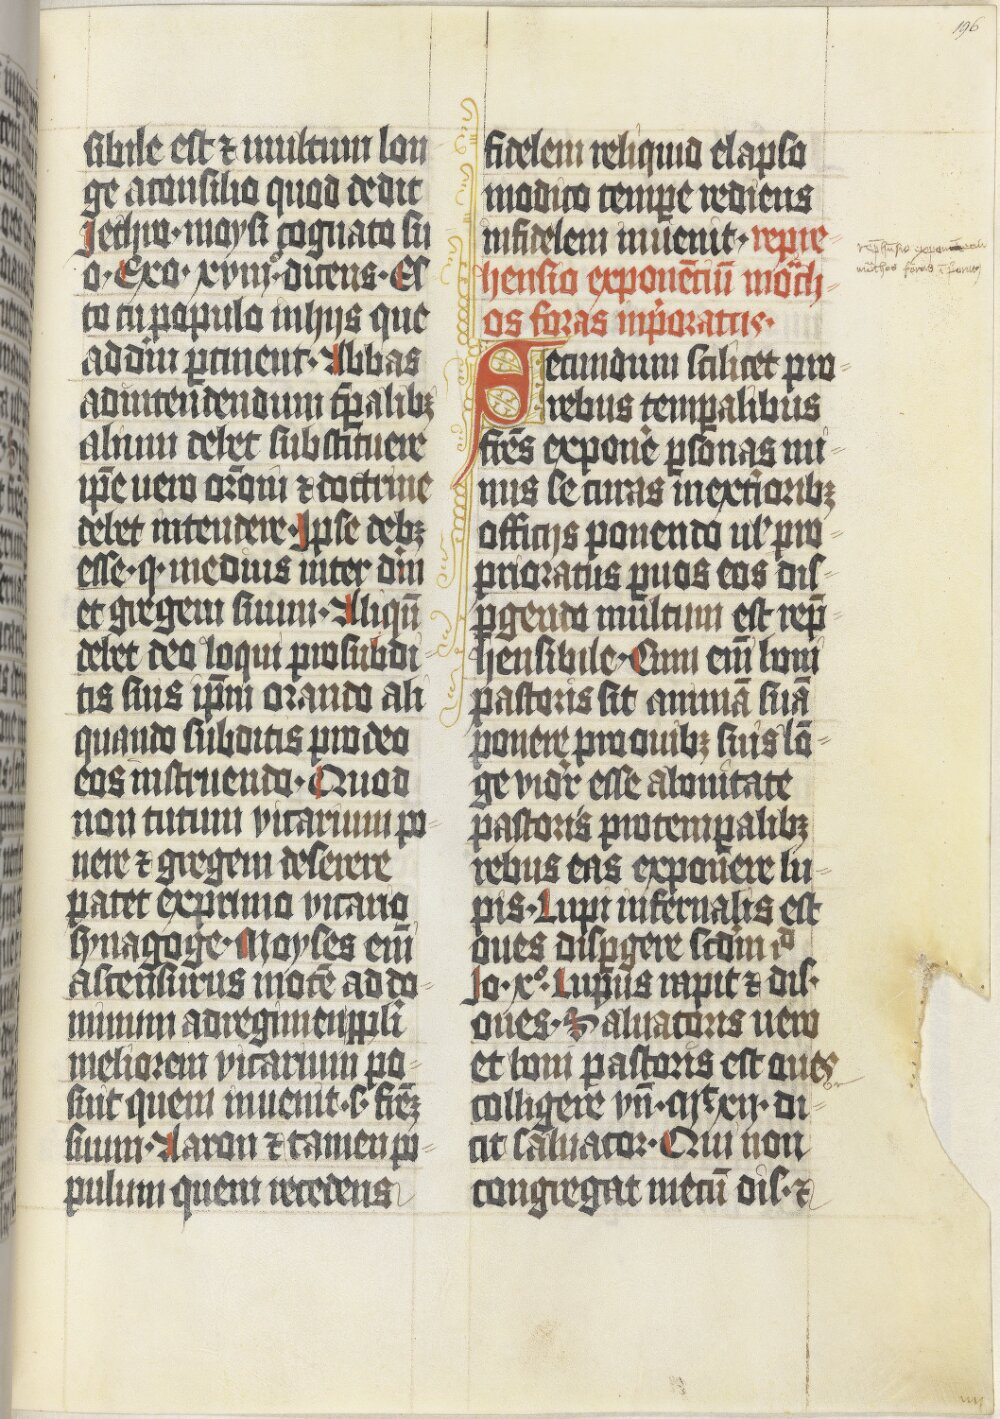 196
sibile est ⁊ multum lon
ge aconsilio quod dedit
Jethro· moysi cognato su
o· Exo· xviij· dicens· Es
to tu populo inhijs que
addm̄ ptinent· Abbas
adintendendum tp̄alibꝫ
alium debet substituere
ip̄e uero orōni ⁊ doctrine
debet intendere· Ipse debꝫ
esse· q· medius inter dm̄
et gregem suum· Aliqn̄
debet deo loqui prosubdi
tis suis ip̄m orando ali
quando subditis prodeo
eos instruendo· Quod
non tutum vicarium po-
nere ⁊ gregem deserere
patet exprimo vicario
synagoge· Moyses em̄
ascensurus mōtē addo-
minum adregimen ppli
meliorem vicarium po-
suit quem inuenit· s· frēꝫ
suum· Aaron ⁊ tamen po-
pulum quem recedens
fidelem reliquid elapso
modico tempꝑe rediens
infidelem inuenit· repre-
hensio exponētiū mōch-
os foras inp̄oratus·
Secundum scilicet pro-
rebus temꝑalibus
frēs exponē ꝑsonas mi-
nus securas inexterioribꝫ
officijs ponendo ul' pro-
prioratus ꝑuos eos dis-
ꝑgendo multum est rep̄-
hensibile· Cum em̄ boni
pastoris sit animā suā
ponere pro ouibꝫ suis lō-
ge vidr̄ esse abonitate
pastoris protemꝑalibꝫ
rebus eas exponere lu-
pis· Lupi infernalis est
oues disꝑgere scdm̄ id
Jo· x°· Lupus rapit ⁊ dis·
oues· Saluatoris uero
et boni pastoris est oues
colligere vn̄· xij· di-
cit saluator· Qui non
congregat mecū dis· ⁊